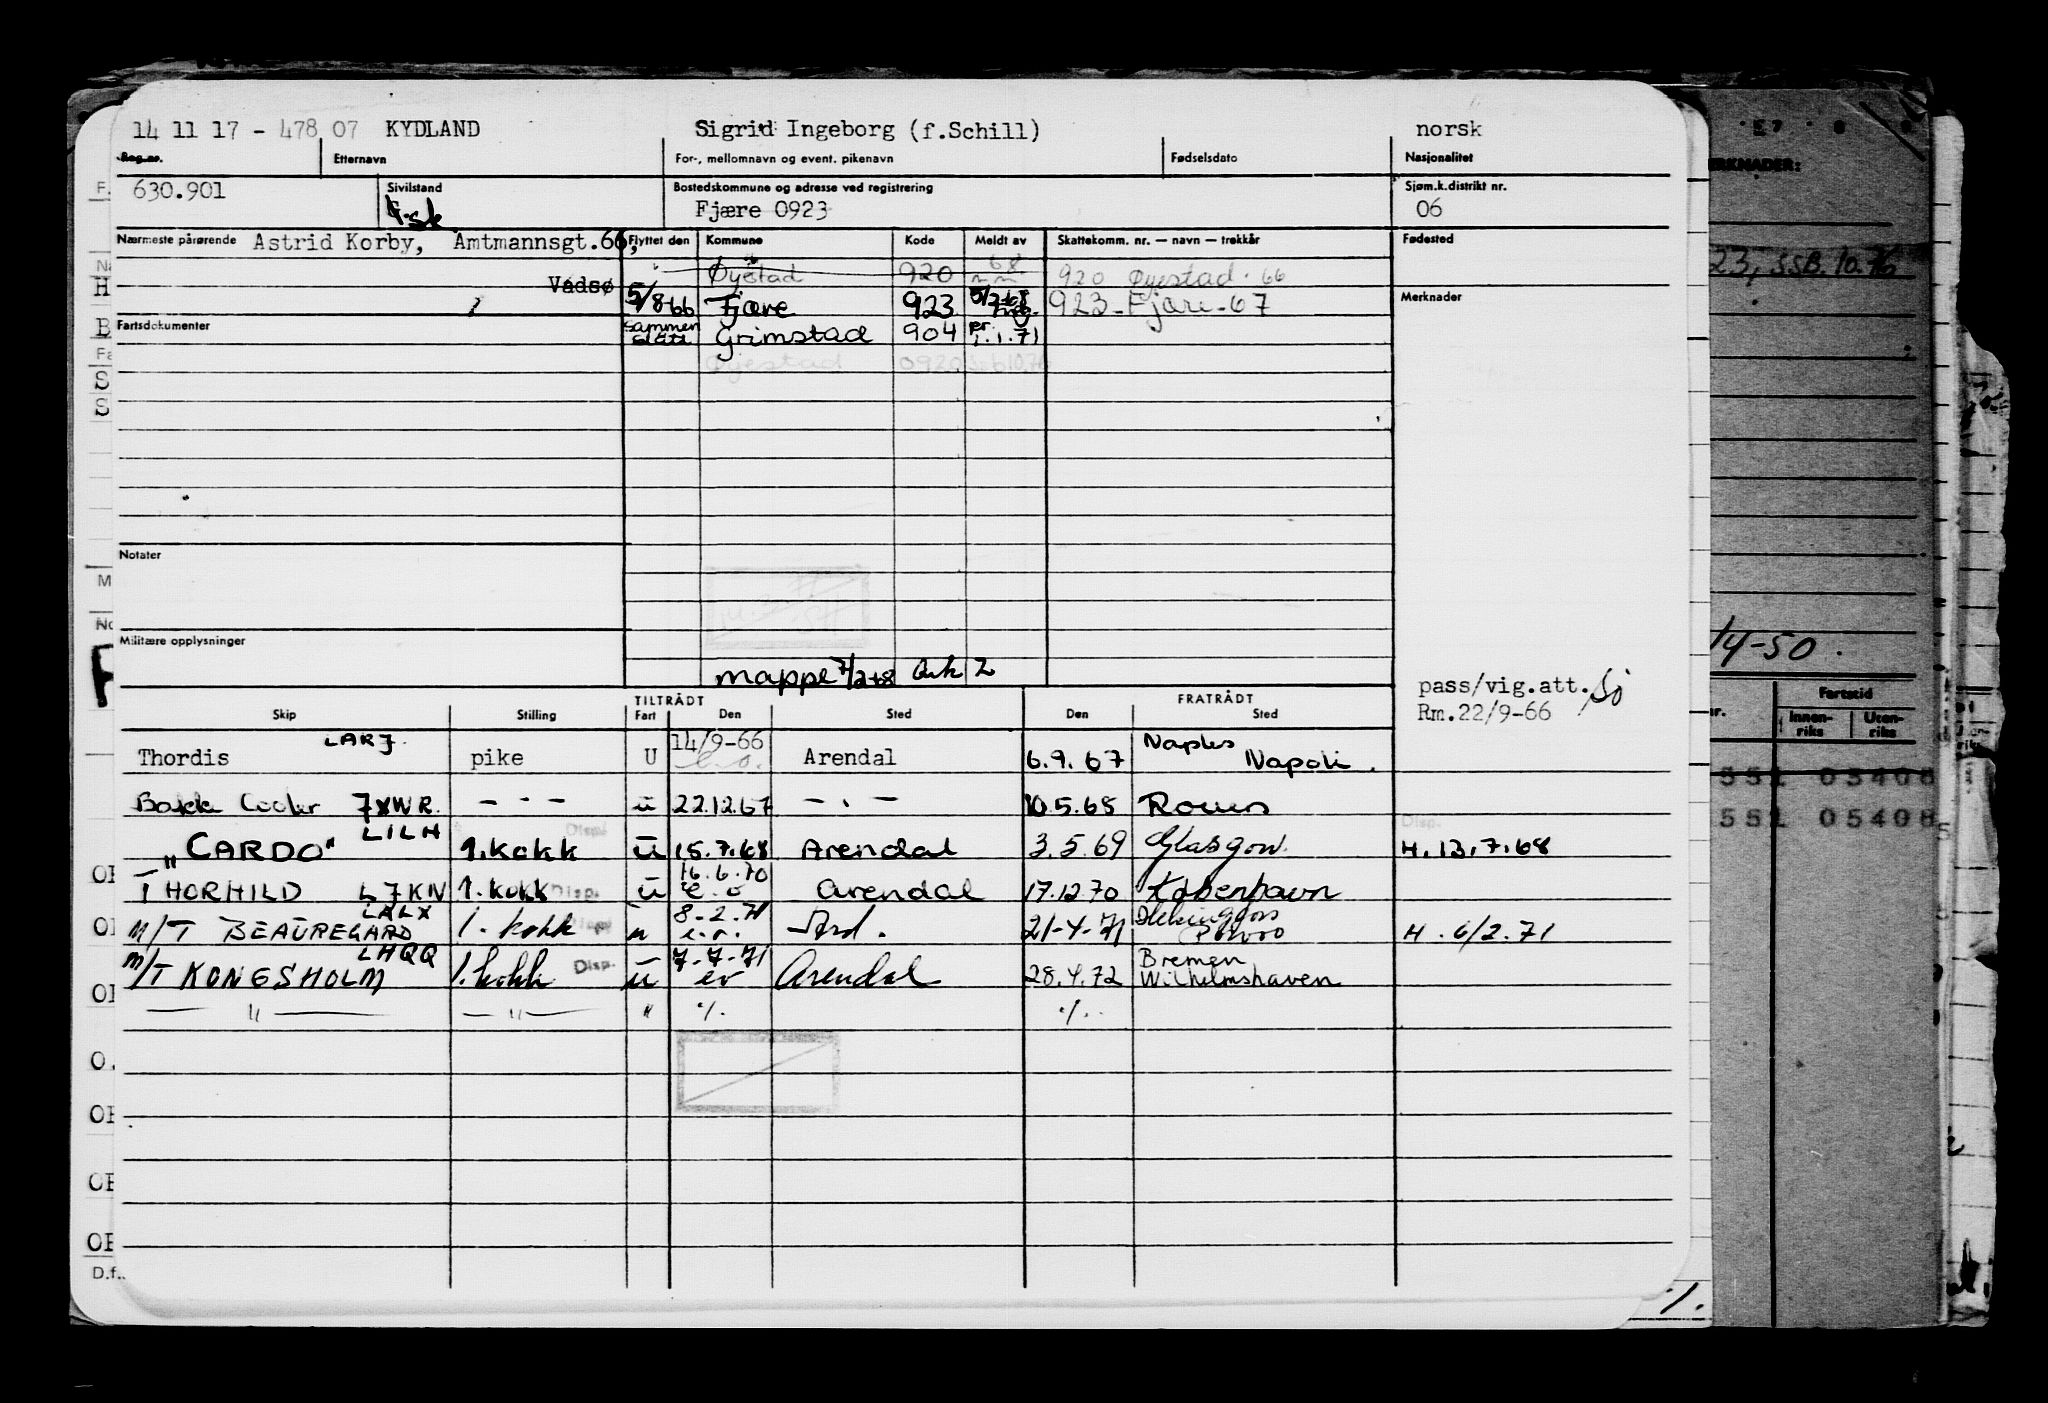 14 11 17 - 478 07 KYDLAND Sigrid Ingeborg (f.Schill) norsk
Reg.nr. Etternavn For-, mellomnavn og event. pikenavn Fødselsdato Nasjonalitet
630.901 Sivilstand Bostedskommune og adresse ved registrering Sjøm.k.distrikt nr.
f.sk Fjære 0923 06
Nærmeste pårørende Astrid Korby, Amtmannsgt.66, Flyttet den Kommune Kode Meldt av Skattekomm. nr. — navn — trekkår Fødested
Øyestad 920 68 920 Øyestad. 66
Vadsø 5/8-66 Fjære 923 923-Fjære-67 Merknader
Fartsdokumenter sammen slått Grimstad 904 pr. 1.1.71
Øyestad 0920 Ssb 10.76
Notater
Militære opplysninger
mappe 7/2-68 Ark 2
pass/vig.att.
Rm.22/9-66
TILTRÅDT FRATRÅDT
Skip Stilling Fart Den Sted Den Sted
Thordis LARJ pike U 14/9-66 Arendal 6.9.67 Naples Napoli.
7XWR. — " — u 22.12.67 — " — 10.5.68
"CARDO" LILH 1.kokk Disp. u 15.7.68 Arendal 3.5.69 Glasgow. Disp. H.13.7.68
THORHILD L7KN 1.kokk Disp. u 16.6.70 e.o Arendal 17.12.70 København
M/T BEAUREGARD LALX 1. kokk u 8-2.71 e.o. Ard. 21-4-71 Helsingfors Porvoo H. 6/2.71
M/T KONGSHOLM LHQQ 1.kokk Disp. u 7-7-71 eo Arendal 28.4.72 Bremen Wilhelmshaven
— " — — " — " ./. ./.
ERKNADER:
23, SSB.10.76
14-50.
Fartstid
Innen-riks Uten-riks
551 05408
551 05408
D.f.
./.